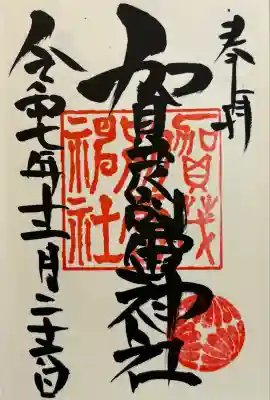 奉拝
賀茂別雷神社
賀茂
神社
令和七年十二月二十日